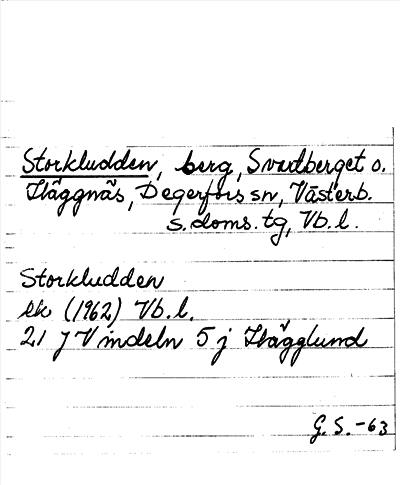 Storkludden, berg, Svartberget o.
Häggnäs, Degerfors sn, Västerb.
s. doms. tg, Vb. l.
Storkludden
ek (1962) Vb. l.
21 J Vindeln 5 j Hägglund
G. S. -63